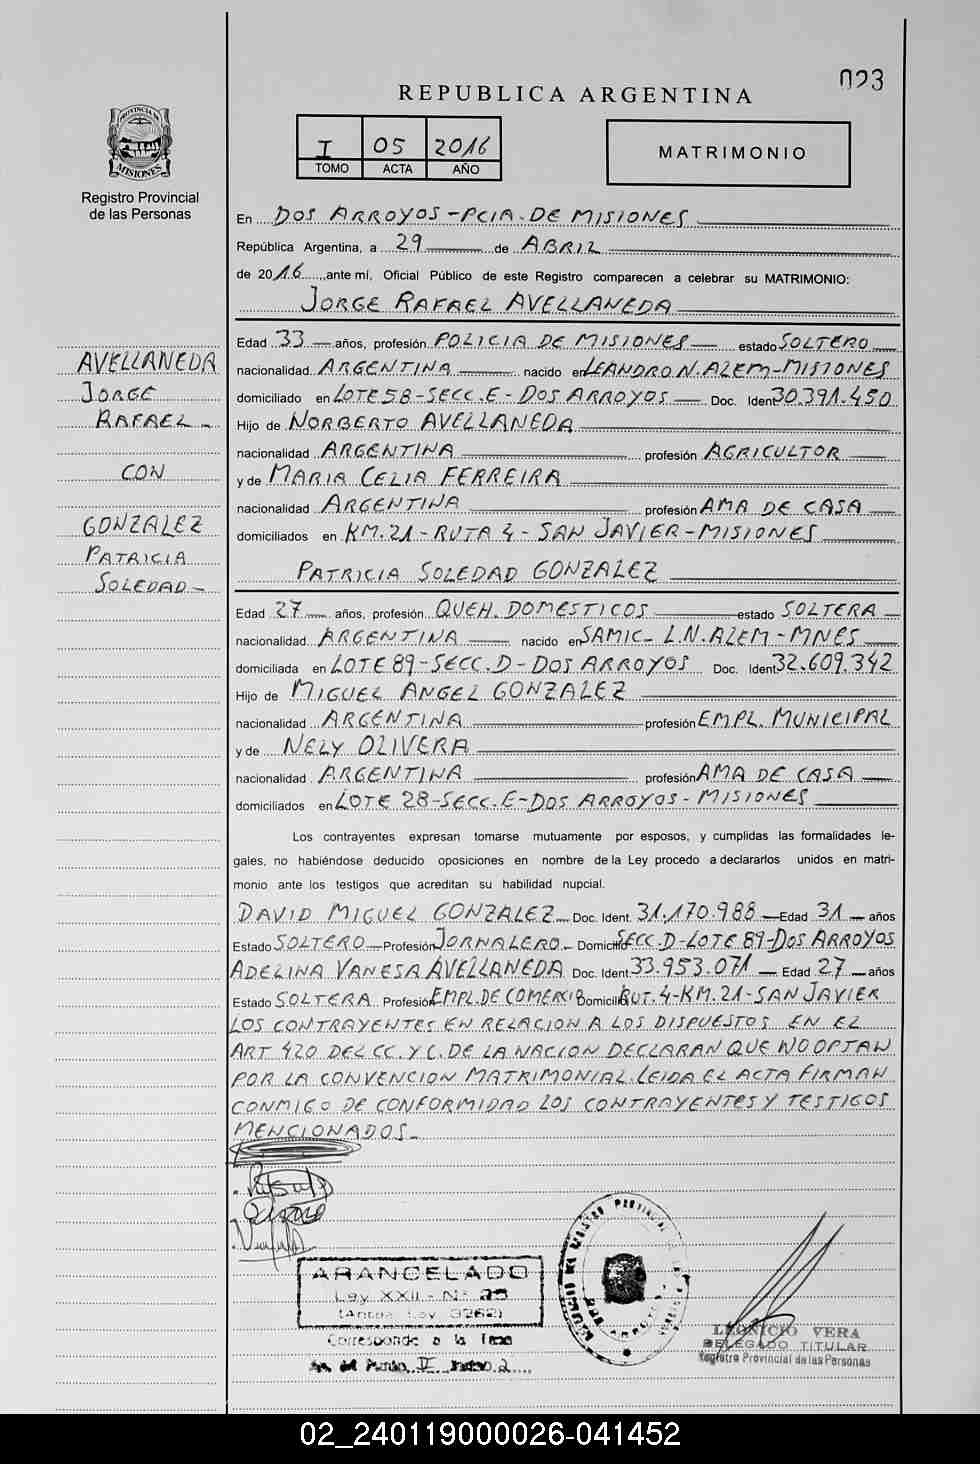 023
REPUBLICA ARGENTINA
I 05 2016
TOMO ACTA AÑO
MATRIMONIO
PROVINCIA DE
MISIONES
Registro Provincial
de las Personas
En DOS ARROYOS-PCIA. DE MISIONES
República Argentina, a 29 de ABRIL
de 2016, ante mí, Oficial Público de este Registro comparecen a celebrar su MATRIMONIO:
JORGE RAFAEL AVELLANEDA
AVELLANEDA
JORGE
RAFAEL -
CON
GONZALEZ
PATRICIA
SOLEDAD -
Edad 33 años, profesión POLICIA DE MISIONES estado SOLTERO
nacionalidad ARGENTINA nacido en LEANDRO N. ALEM-MISIONES
domiciliado en LOTE 58-SECC. E - DOS ARROYOS Doc. Ident 30.391.450
Hijo de NORBERTO AVELLANEDA
nacionalidad ARGENTINA profesión AGRICULTOR
y de MARIA CELIA FERREIRA
nacionalidad ARGENTINA profesión AMA DE CASA
domiciliados en KM.21-RUTA 4 - SAN JAVIER-MISIONES
PATRICIA SOLEDAD GONZALEZ
Edad 27 años, profesión QUEH. DOMESTICOS estado SOLTERA
nacionalidad ARGENTINA nacido en SAMIC- L.N.ALEM-MNES
domiciliada en LOTE 89-SECC. D-DOS ARROYOS Doc. Ident 32.609.342
Hijo de MIGUEL ANGEL GONZALEZ
nacionalidad ARGENTINA profesión EMPL. MUNICIPAL
y de NELY OLIVERA
nacionalidad ARGENTINA profesión AMA DE CASA
domiciliados en LOTE 28-SECC. E-DOS ARROYOS-MISIONES
Los contrayentes expresan tomarse mutuamente por esposos, y cumplidas las formalidades le-
gales, no habiéndose deducido oposiciones en nombre de la Ley procedo a declararlos unidos en matri-
monio ante los testigos que acreditan su habilidad nupcial.
DAVID MIGUEL GONZALEZ Doc. Ident. 31.170.988 Edad 31 años
Estado SOLTERO Profesión JORNALERO - Domicilio SECC. D-LOTE 89-DOS ARROYOS
ADELINA VANESA AVELLANEDA Doc. Ident. 33.953.071 - Edad 27 años
Estado SOLTERA Profesión EMPL. DE COMERCIO Domicilio RUT.4-KM.21-SAN JAVIER
LOS CONTRAYENTES EN RELACION A LOS DISPUESTOS EN EL
ART 420 DEL CC. Y C. DE LA NACION DECLARAN QUE NO OPTAN
POR LA CONVENCION MATRIMONIAL. LEIDA EL ACTA FIRMAN
CONMIGO DE CONFORMIDAD LOS CONTRAYENTES Y TESTIGOS
MENCIONADOS -
ARANCELADO
Ley XXII - Nº 25
(Antes Ley 3262)
Corresponde a la Tasa
DOS ARROYOS
LEONICIO VERA
DELEGADO TITULAR
Registro Provincial de las Personas
02_240119000026-041452